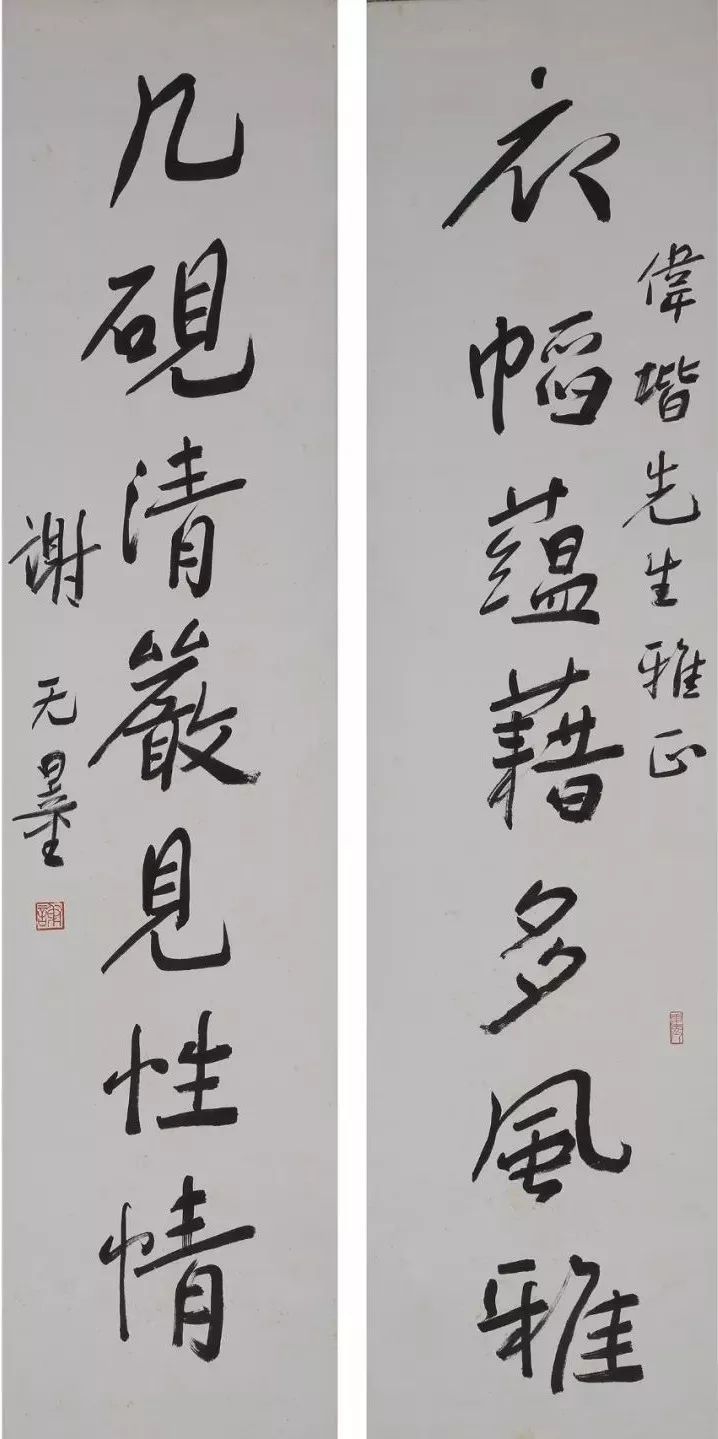 偉堦先生雅正
衣幅蘊藉多風雅
几硯清嚴見性情
謝无量